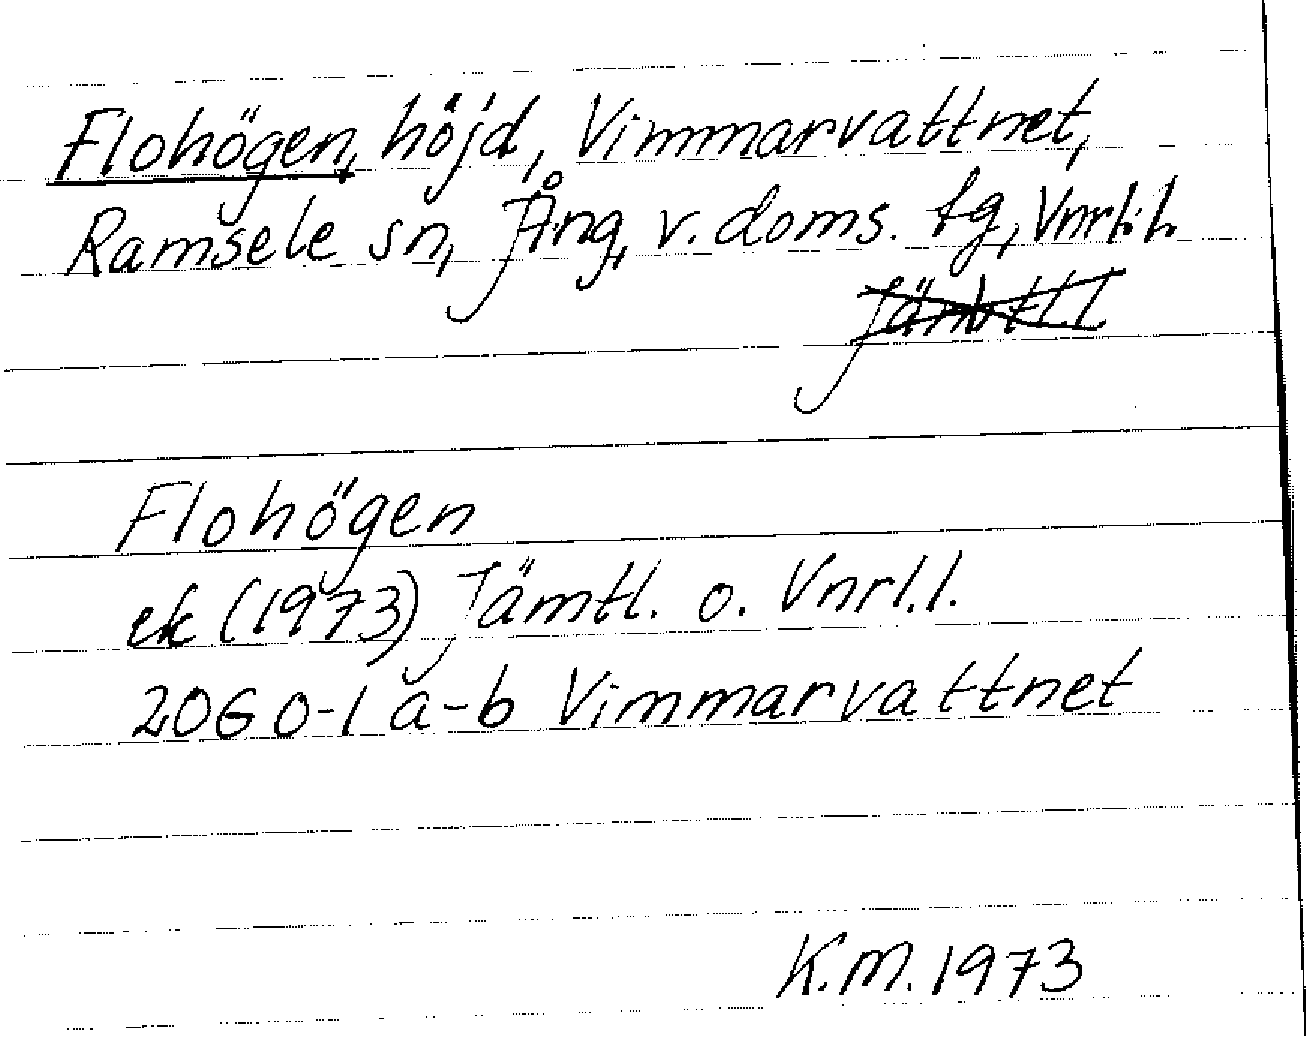 Flohögen, höjd, Vimmarvattnet,
Ramsele sn, Ång, v. doms. tg, Vnrl.l.
Jämtl.l
Flohögen
ek (1973) Jämtl. o. Vnrl.l.
2060-1 a-b Vimmarvattnet
K.M. 1973